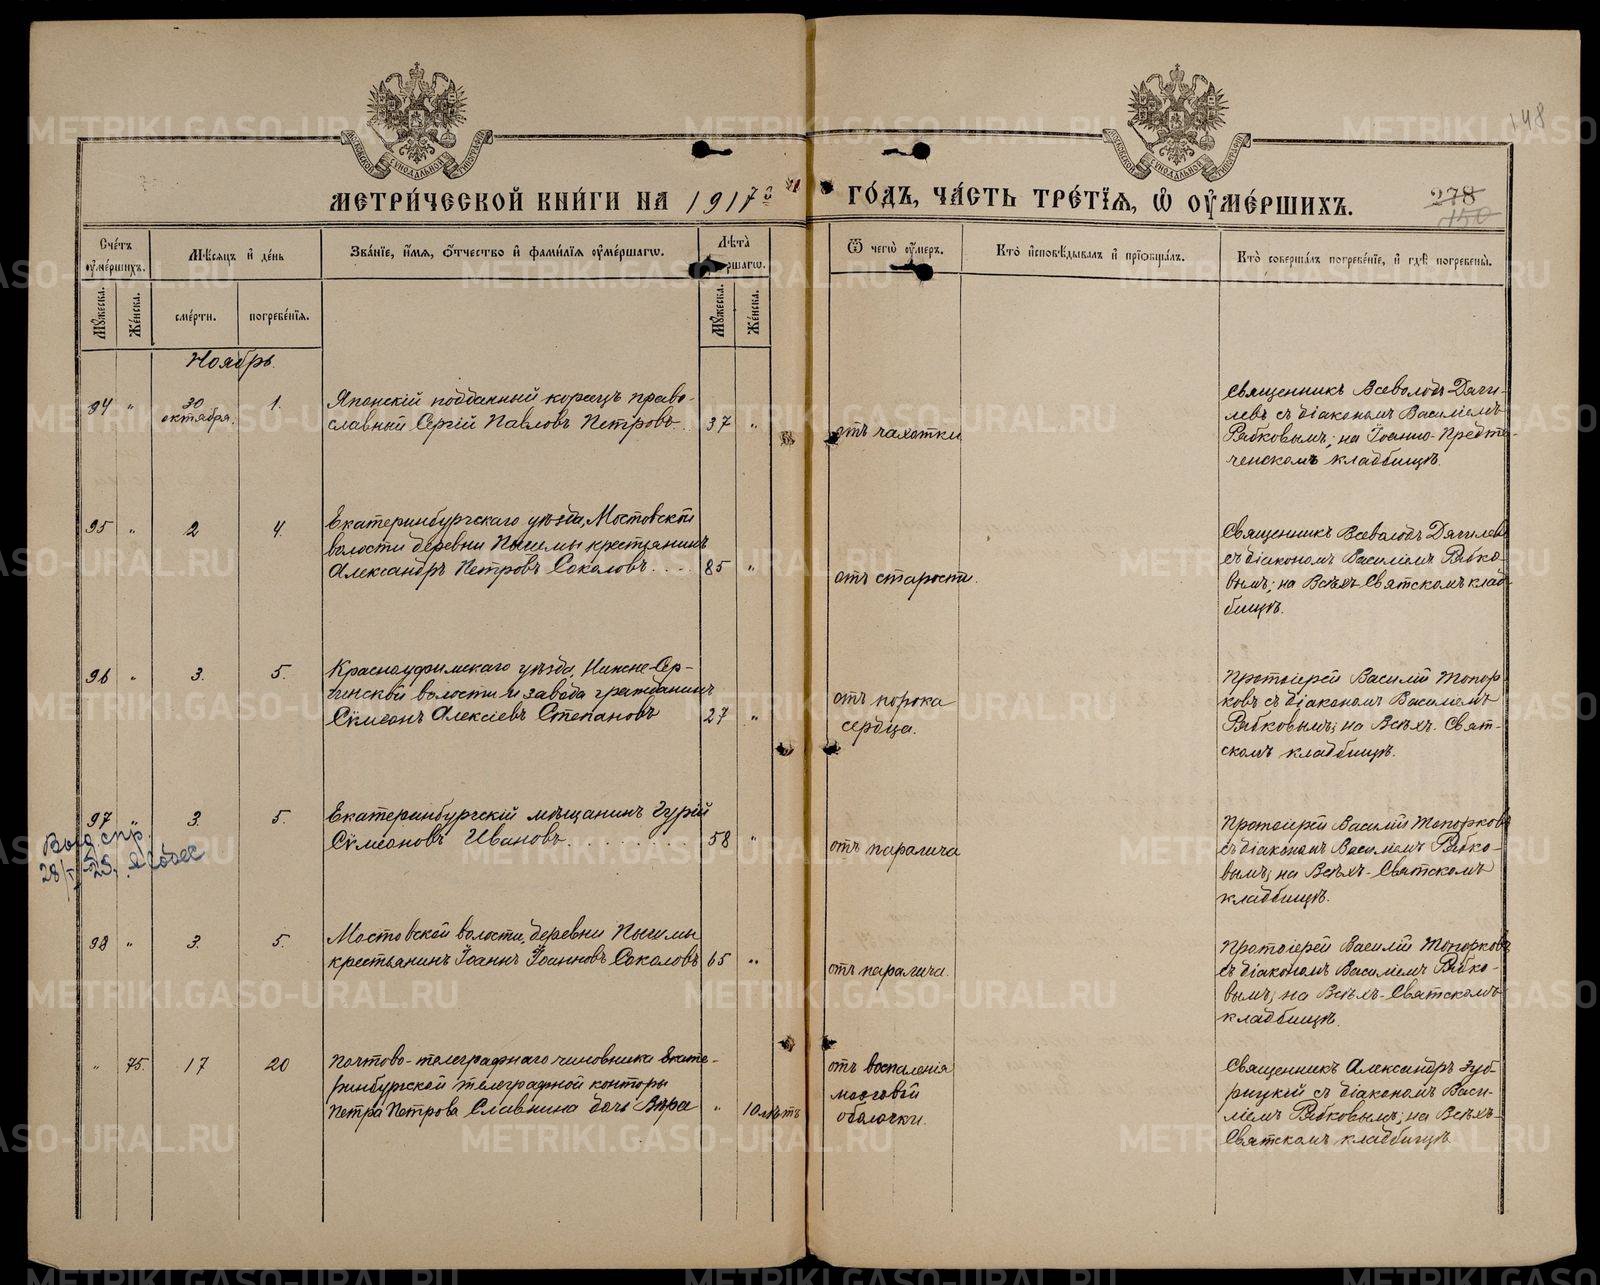 148
МЕТРИ́ЧЕСКОЙ КНИ́ГИ НА 1917й
ГО́ДЪ, ЧА́СТЬ ТРЕ́ТІЯ, Ѡ҆ ОУ҆МЕ́РШИХЪ.
278
150
Сче́тъ оу҆ме́ршихъ.
Мѣ́сяцъ и҆ де́нь
Зва́ніе, и҆́мя, ѻ҆́тчество и҆ фами́лія оу҆ме́ршагѡ.
Лѣ́та
ршагѡ.
Ѿ чегѡ̀ оу҆́меръ.
Кто̀ и҆сповѣ́дывалъ и҆ прїѻбща́лъ.
Кто̀ соверша́лъ погребе́ніе, и҆ гдѣ̀ погребены̀.
Му́жеска.
Же́нска.
сме́рти.
погребе́нія.
Му́жеска.
Же́нска.
Ноябрь.
94 " 30 октября. 1.
Японскій подданный кореецъ право-
славный Сергій Павловъ Петровъ. 37 "
отъ чахотки
Священникъ Всеволодъ Дяги-
левъ съ діакономъ Василіемъ
Рябковымъ; на Іоанно-Предте-
ченскомъ кладбищѣ.
95 " 2 4.
Екатеринбургскаго уѣзда, Мостовской
волости деревни Пышмы крестьянинъ
Александръ Петровъ Соколовъ. . . . 85 "
отъ старости.
Священникъ Всеволодъ Дягилевъ
съ діакономъ Василіемъ Рябко-
вымъ; на Всѣхъ-Святскомъ клад-
бищѣ.
96 " 3. 5.
Красноуфимскаго уѣзда, Нижне-Сер-
гинской волости и завода гражданинъ
Сѵмеонъ Алексіевъ Степановъ 27 "
отъ порока
сердца.
Протоіерей Василій Топор
ковъ съ діакономъ Василіемъ
Рябковымъ; на Всѣхъ-Свят-
скомъ кладбищѣ.
97 " 3. 5.
Екатеринбургскій мѣщанинъ Гурій
Сѵмеоновъ Ивановъ. . . . . . . . 58 "
отъ паралича
Протоіерей Василій Топорковъ
съ діакономъ Василіемъ Рябко-
вымъ; на Всѣхъ-Святскомъ
кладбищѣ.
Выд. спр.
98 " 3. 5.
Мостовской волости, деревни Пышмы
крестьянинъ Іоаннъ Іоанновъ Соколовъ 65 "
отъ паралича.
Протоіерей Василій Топорковъ
съ діакономъ Василіемъ Рябко-
вымъ; на Всѣхъ-Святскомъ
кладбищѣ.
" 75. 17 20
Почтово-телеграфнаго чиновника Екате-
ринбургской телеграфной конторы
Петра Петрова Славнина дочь Вѣра " 10 лѣтъ
отъ воспаленія
мозговой
оболочки.
Священникъ Александръ Зуб-
рицкій съ діакономъ Васи-
ліемъ Рябковымъ; на Всѣхъ-
Святскомъ кладбищѣ.
METRIKI.GASO-URAL.RU